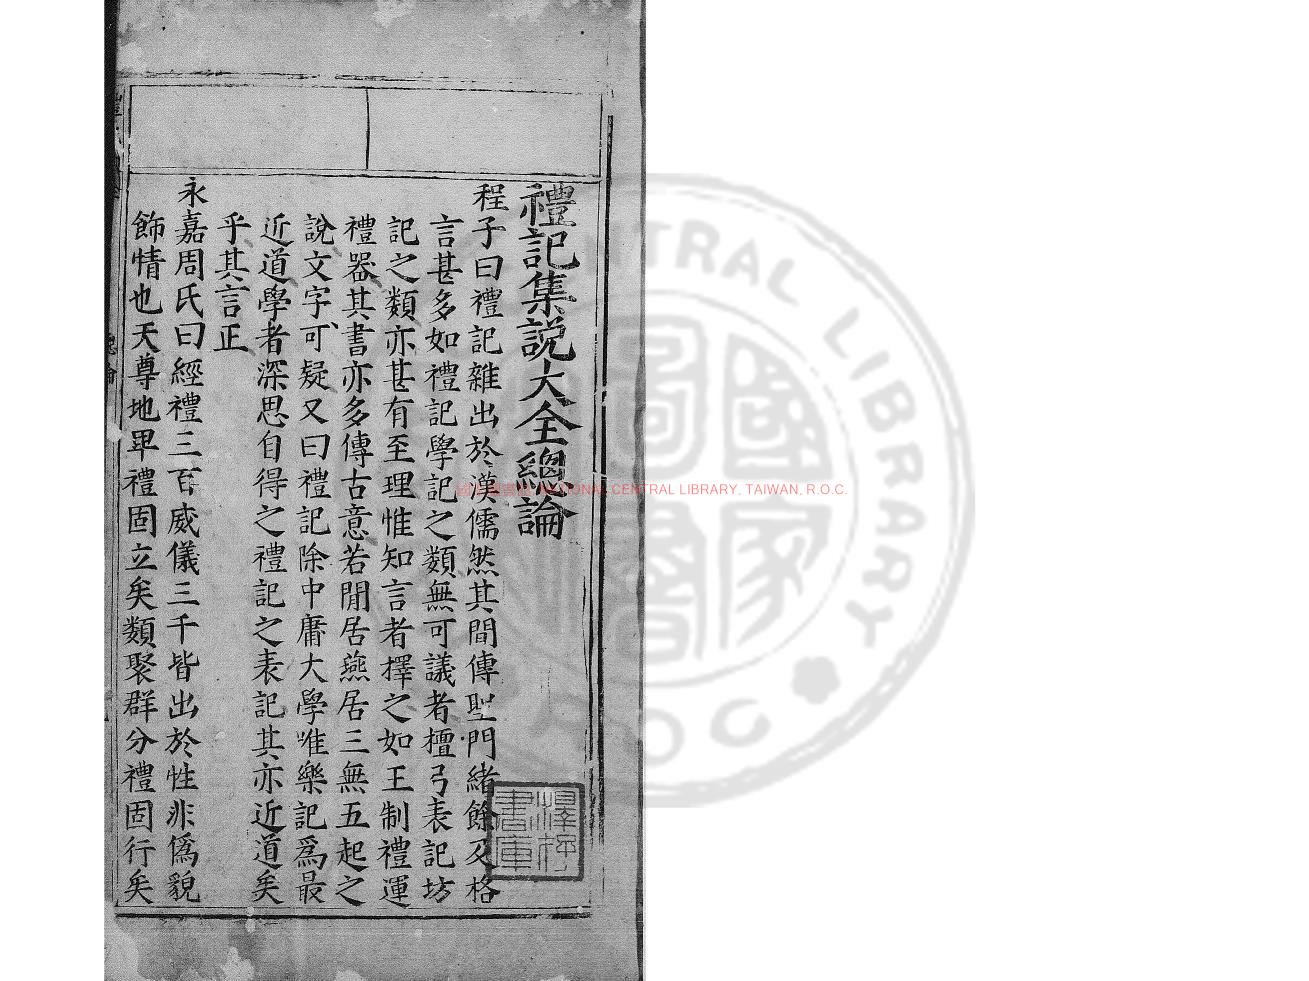 禮記集說大全總論
程子曰禮記雜出於漢儒然其間傳聖門緒餘及格
言甚多如禮記學記之類無可議者檀弓表記坊
記之類亦甚有至理惟知言者擇之如王制禮運
禮器其書亦多傳古意若閒居燕居三無五起之
說文字可疑又曰禮記除中庸大學唯樂記爲最
近道學者深思自得之禮記之表記其亦近道矣
乎其言正
永嘉周氏曰經禮三百威儀三千皆出於性非僞貌
飾情也天尊地卑禮固立矣類聚群分禮固行矣
NATIONAL CENTRAL LIBRARY, TAIWAN, R.O.C.
CENTRAL LIBRARY
ROC
書庫